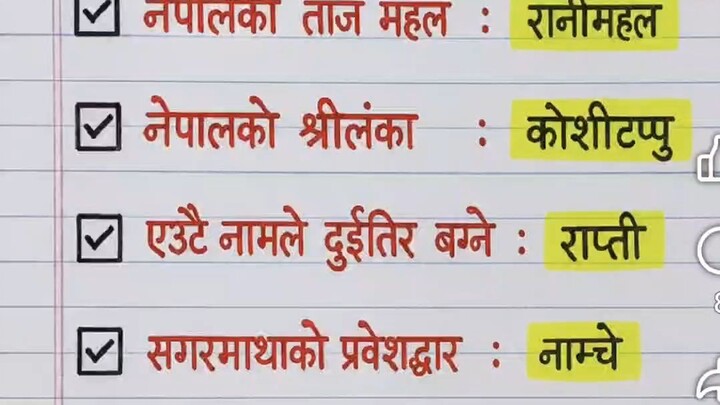 नेपालको ताज महल : रानीमहल
नेपालको श्रीलंका : कोशीटप्पु
एउटै नामले दुईतिर बग्ने : राप्ती
सगरमाथाको प्रवेशद्वार : नाम्चे